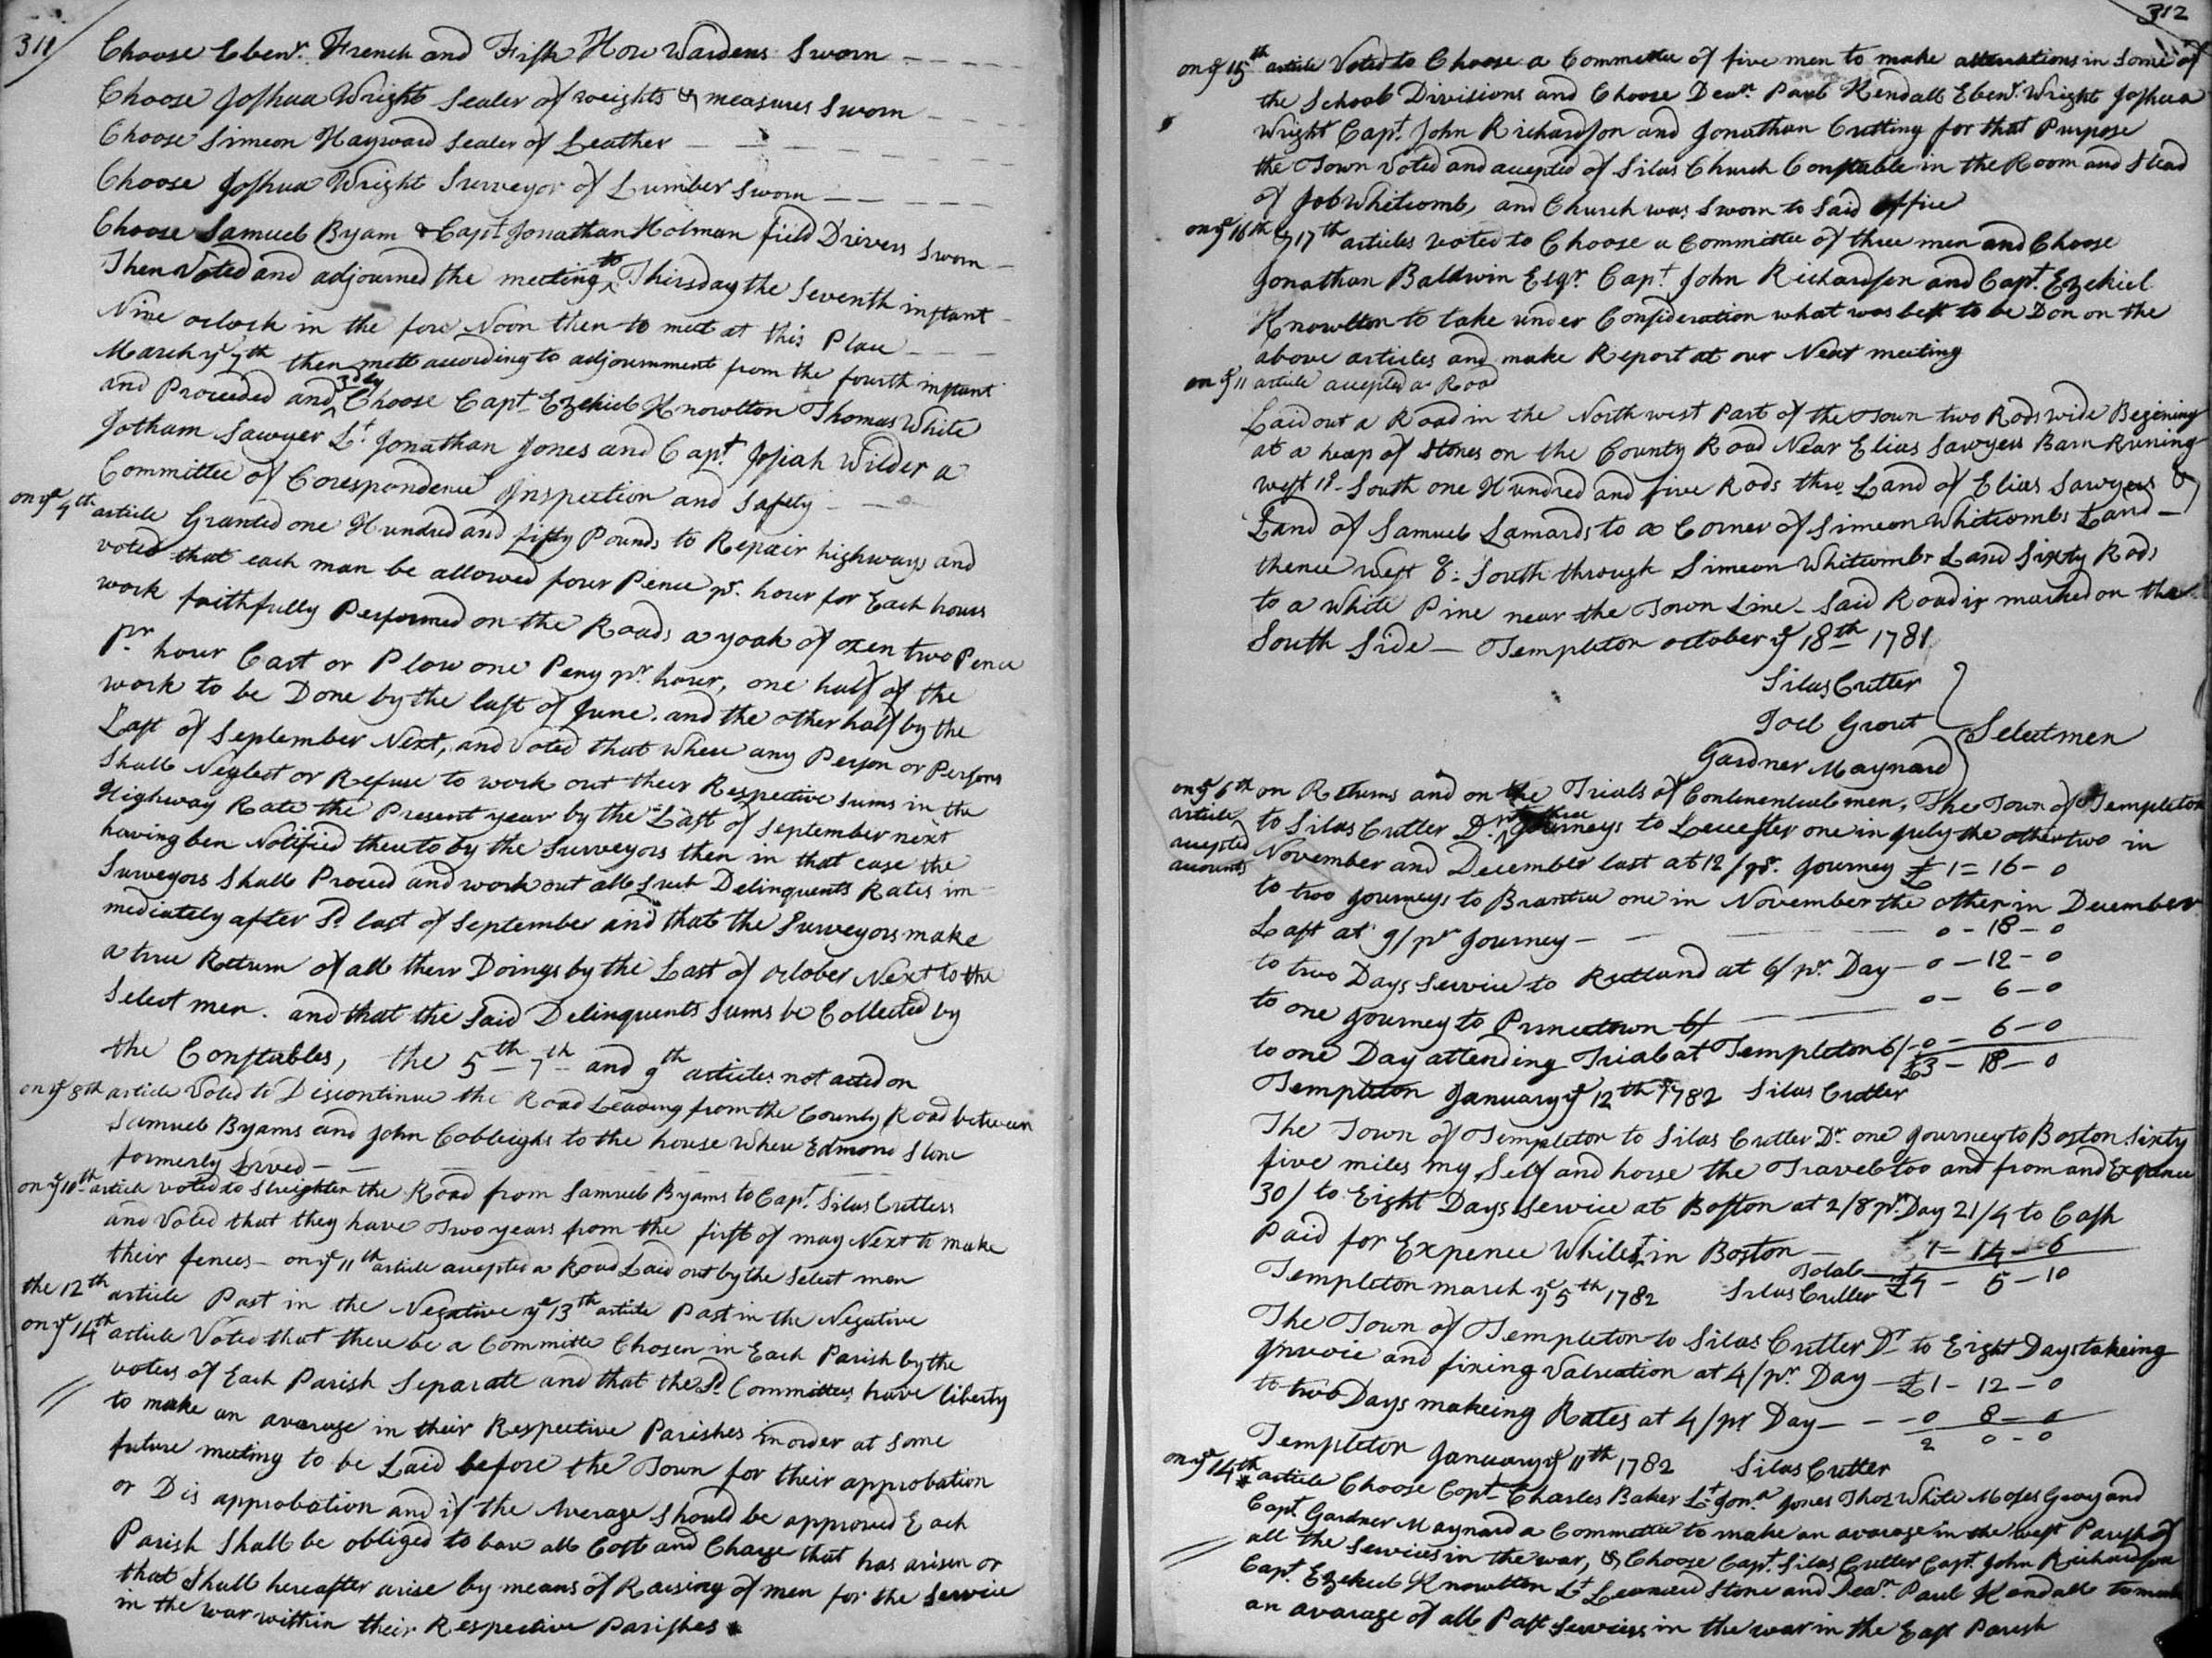 311/
Choose Eben.r French and Fisk How Wardens Sworn
Choose Joshua Wright Sealer of weights & measures Sworn
Choose Simeon Hayward Sealer of Leather
Choose Joshua Wright Surveyor of Lumber Sworn
Choose Samuel Byam & Capt Jonathan Holman field Drivers Sworn
Then Voted and adjourned the meeting to Thirsday the Seventh instant
Nine oclock in the fore Noon then to meet at this Place
March ye 7th then mett according to adjournment from the fourth instant
and Proceeded and 3dly Choose Capt Ezekiel Knowlton Thomas White
Jotham Sawyer Lt Jonathan Jones and Capt Josiah Wilder a
Committee of Corespondence Inspection and Safety
on ye 4th article Granted one Hundred and fifty Pounds to Repair highways and
voted that each man be allowed four Pence pr. hour for Each hours
work faithfully Performed on the Roads a yoak of oxen two Pence
pr hour Cart or Plow one Peny pr hour, one half of the
work to be Done by the last of June. and the other half by the
Last of September Next, and Voted that where any Person or Persons
Shall Neglect or Refuse to work out their Respective Sums in the
Highway Rate the Present year by the Last of September next
having ben Notified thereto by the Surveyors then in that case the
Surveyors Shall Proceed and work out all Such Delinquents Rates im-
mediately after Sd last of September and that the Surveyors make
a true Return of all their Doings by the Last of october Next to the
Select men. and that the Said Delinquents Sums be Collected by
the Constables, the 5th 7th and 9th articles not acted on
on ye 8th article Voted to Discontinue the Road Leading from the County Road between
Samuel Byams and John Cobleighs to the house Where Edmond Stone
formerly Lived
on ye 10th article voted to Streighten the Road from Samuel Byams to Capt. Silas Cutlers
and Voted that they have Two years from the first of may Next to make
their fences - on ye 11th article accepted a Road Laid out by the Select men
the 12th article Past in the Negative ye 13th article Past in the Negative
on ye 14th article Voted that there be a Committe Chosen in Each Parish by the
voters of Each Parish Separate and that the Sd. Committees have liberty
to make an avarage in their Respective Parishes inorder at Some
future meeting to be Laid before the Town for their approbation
or Dis approbation and if the Average Should be approved Each
Parish Shall be obliged to bare all Cost and Charge that has arisen or
that Shall hereafter arise by means of Raising of men for the Service
in the war within their Respective Parishes
312
on ye 15th article Voted to Choose a Committee of five men to make alterations in Some of
the School Divisions and Choose Dean. Paul Kendall Ebenr. Wright Joshua
Wright Capt. John Richardson and Jonathan Cutting for that Purpose
the Town Voted and accepted of Silas Church Constable in the Room and Stead
of Job Whitcomb, and Church was Sworn to Said office
on ye 16th & 17th articles voted to Choose a Committee of three men and Choose
Jonathan Baldwin Esqr. Capt John Richardson and Capt. Ezekiel
Knowlton to take under Consideration what was best to be Don on the
above articles and make Report at our Next meeting
on ye 11 article accepted a Road
Laid out a Road in the North west Part of the Town two Rods wide Begining
at a heap of Stones on the County Road Near Elias Sawyers Barn Runing
west 18 South one Hundred and five Rods thro Land of Elias Sawyers &
Land of Samuel Lamards to a Corner of Simeon Whitcombs Land -
thence west 8: South through Simeon Whitcombs Land Sixty Rods
to a White Pine near the Town Line - Said Road is marked on the
South Side - Templeton october ye 18th 1781
Silas Cutler
Joel Grout
Gardner Maynard } Selectmen
on ye 6th article accepted accounts
on Returns and on the Trials of Continental men, The Town of Templeton
to Silas Cutler Dr. to three Journeys to Leicester one in July the other two in
November and December last at 12/ pr. Journey £ 1 = 16 - 0
to two Journeys to Brantree one in November the other in December
Last at 9/ pr Journey - 0 - 18 - 0
to two Days Service to Rutland at 6/ pr. Day - 0 - 12 - 0
to one Journey to Princetown 6/ 0 - 6 - 0
to one Day attending Trial at Templeton 6/ - 0 - 6 - 0
£3 - 18 - 0
Templeton January ye 12th 1782 Silas Cutler
The Town of Templeton to Silas Cutler Dr. one Journey to Boston Sixty
five miles my Self and horse the Travel too and from and Expence
30/ to Eight Days Service at Boston at 2/8 pr. Day 21/4 to Cash
Paid for Expence Whilest in Boston - 1 - 14 - 6
Total £4 - 5 - 10
Templeton march ye 5th 1782 Silas Cutler
The Town of Templeton to Silas Cutler Dr to Eight Days takeing
Invoice and fixing Valuation at 4/ pr. Day - £1 - 12 - 0
to two Days makeing Rates at 4/ pr Day - - - 0 8 - 0
2 0 - 0
Templeton January ye 11th 1782 Silas Cutler
on ye 14th article Choose Capt Charles Baker Lt Jona. Jones Thos White Moses Gray and
Capt Gardner Maynard a Committee to make an avarage in the west Parish of
all the Services in the war, & Choose Capt. Silas Cutler Capt. John Richardson
Capt. Ezekiel Knowlton Lt Leonard Stone and Dean. Paul Kendall to make
an avarage of all Past Services in the war in the East Parish